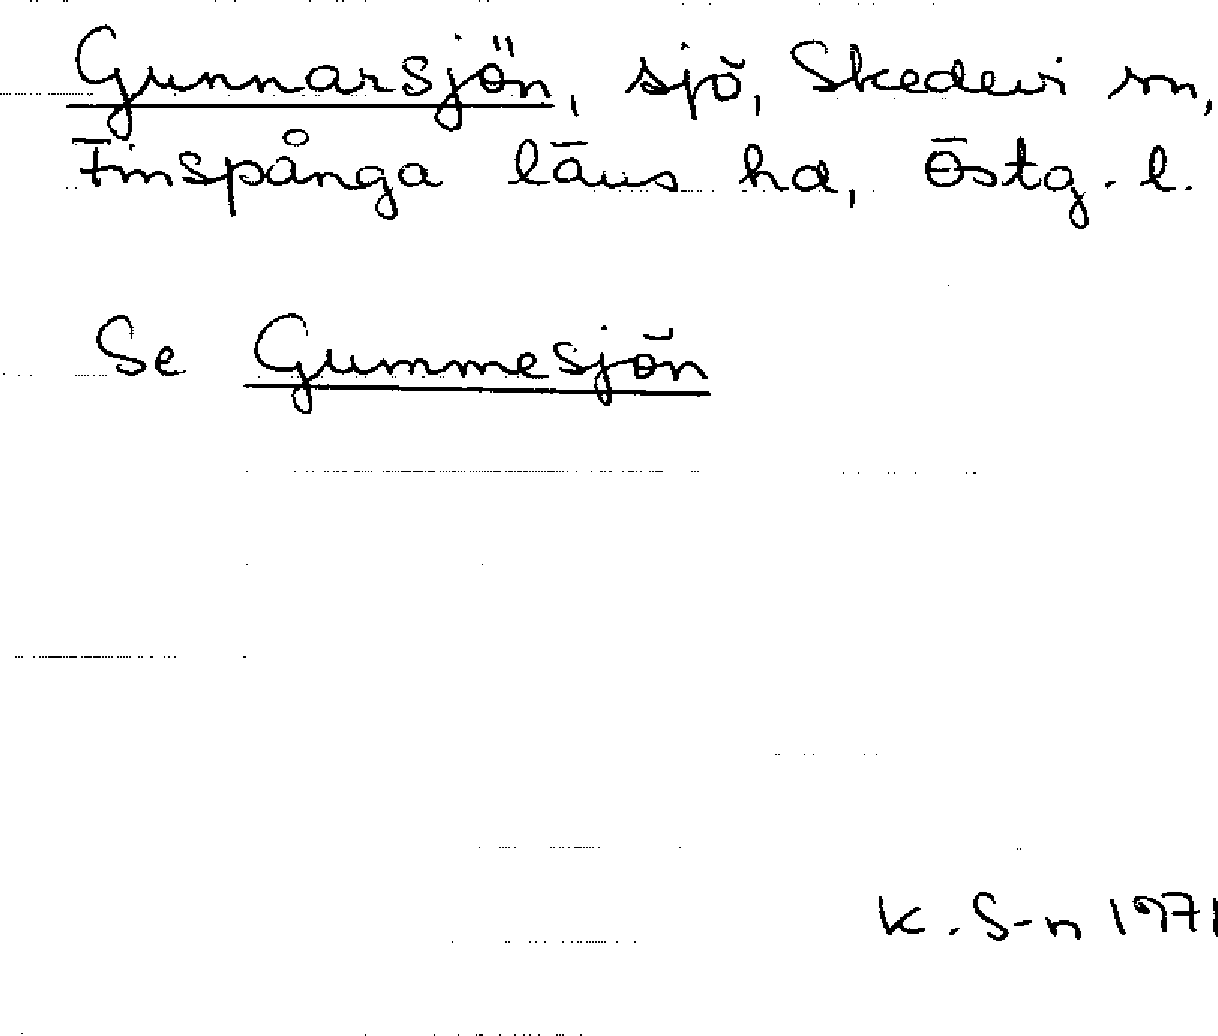 Gunnarsjön, sjö, Skedevi sn,
Finspånga läns hd, Östg. l.
Se Gummesjön
K. S-n 1971